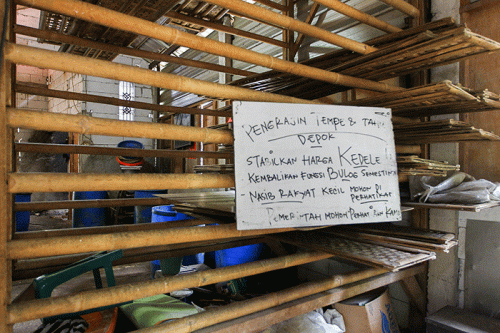 PENGRAJIN TEMPE & TAHU
DEPOK
STABILKAN HARGA KEDELE
KEMBALIKAN FUNGSI BULOG SEMESTINYA
NASIB RAKYAT KECIL MOHON DI
PERHATIKAN
PEMERINTAH MOHON PERHATIKAN KAMI